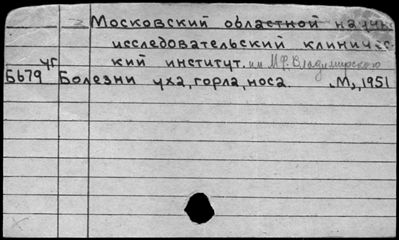 Московский областной научно
исследовательский клиничес-
уг кий институт. им М.Ф. Владимирского
Б679 Болезни уха, горла, носа. М., 1951